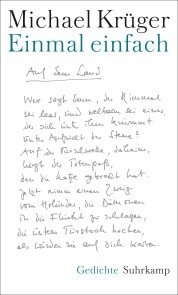 Michael Krüger
Einmal einfach
Auf dem Land
Wer sagt denn, der Himmel
sei leer, und weltarm sei einer,
der sich um ihn kümmert
unter Aufsicht der Sterne?
Auf der Türschwelle, daheim,
liegt der Totenspaß,
den die Katze gebracht hat.
Jetzt nimm einen Zweig
vom Holunder, die Dämonen
in die Flucht zu schlagen,
die unterm Türstock hocken,
als würden sie auf dich warten.
Gedichte Suhrkamp